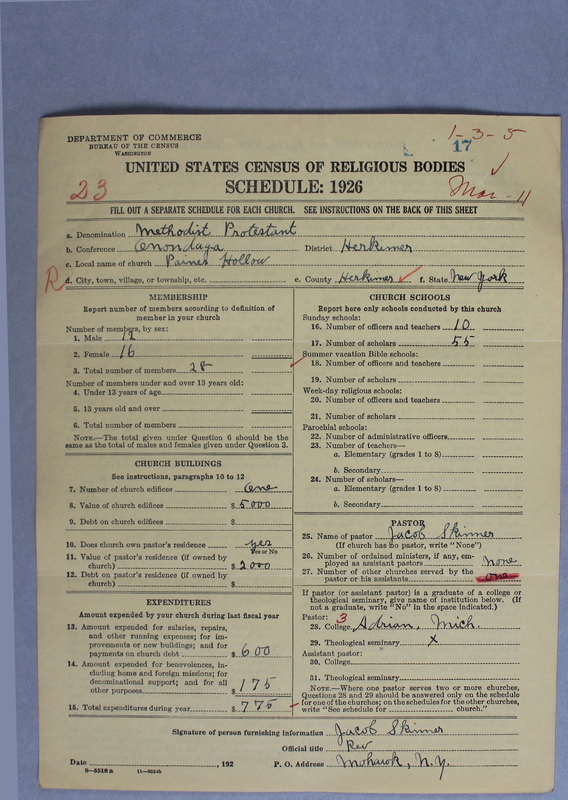 1-3-5
17
DEPARTMENT OF COMMERCE
BUREAU OF THE CENSUS
WASHINGTON
UNITED STATES CENSUS OF RELIGIOUS BODIES
23 SCHEDULE: 1926 Mar - 11
FILL OUT A SEPARATE SCHEDULE FOR EACH CHURCH. SEE INSTRUCTIONS ON THE BACK OF THIS SHEET
a. Denomination Methodist Protestant
b. Conference Onondaga District Herkimer
c. Local name of church Paines Hollow
R d. City, town, village, or township, etc. e. County Herkimer f. State New York
MEMBERSHIP
Report number of members according to definition of
member in your church
Number of members, by sex:
1. Male 12
2. Female 16
3. Total number of members 28
Number of members under and over 13 years old:
4. Under 13 years of age
5. 13 years old and over
6. Total number of members
NOTE.—The total given under Question 6 should be the
same as the total of males and females given under Question 3.
CHURCH BUILDINGS
See instructions, paragraphs 10 to 12
7. Number of church edifices one
8. Value of church edifices $ 5000
9. Debt on church edifices $
10. Does church own pastor's residence? yes
Yes or No
11. Value of pastor's residence (if owned by
church) $ 2000
12. Debt on pastor's residence (if owned by
church) $
EXPENDITURES
Amount expended by church during last fiscal year
13. Amount expended for salaries, repairs,
and other running expenses; for im-
provements or new buildings; and for
payments on church debt $ 600
14. Amount expended for benevolences, in-
cluding home and foreign missions; for
denominational support; and for all
other purposes $ 175
15. Total expenditures during year $ 775
CHURCH SCHOOLS
Report here only schools conducted by this church
Sunday schools:
16. Number of officers and teachers 10
17. Number of scholars 55
Summer vacation Bible schools:
18. Number of officers and teachers
19. Number of scholars
Week-day religious schools:
20. Number of officers and teachers
21. Number of scholars
Parochial schools:
22. Number of administrative officers
23. Number of teachers—
a. Elementary (grades 1 to 8)
b. Secondary
24. Number of scholars—
a. Elementary (grades 1 to 8)
b. Secondary
PASTOR
25. Name of pastor Jacob Skinner
(If church has no pastor, write "None")
26. Number of ordained ministers, if any, em-
ployed as assistant pastors none
27. Number of other churches served by the
pastor or his assistants one
If pastor (or assistant pastor) is a graduate of a college or
theological seminary, give name of institution below. (If
not a graduate, write "No" in the space indicated.)
Pastor: 3
28. College Adrian, Mich.
29. Theological seminary x
Assistant pastor:
30. College
31. Theological seminary
NOTE.—Where one pastor serves two or more churches,
Questions 28 and 29 should be answered only on the schedule
for one of the churches; on the schedules for the other churches,
write "See schedule for church."
Signature of person furnishing information Jacob Skinner
Official title Rev
Date , 192 P. O. Address Mohawk, N.Y.